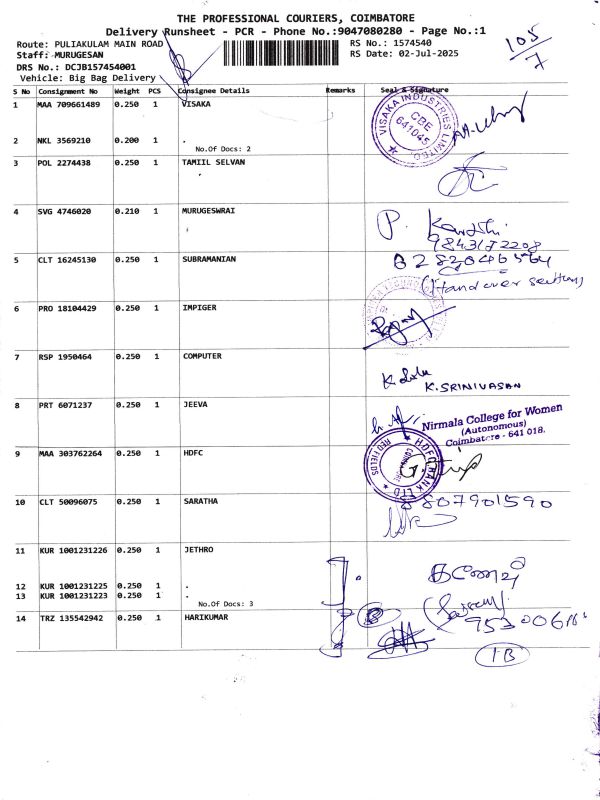 THE PROFESSIONAL COURIERS, COIMBATORE
Delivery Runsheet - PCR - Phone No.:9047080280 - Page No.:1
Route: PULIAKULAM MAIN ROAD
Staff: MURUGESAN
DRS No.: DCJB157454001
Vehicle: Big Bag Delivery
RS No.: 1574540
RS Date: 02-Jul-2025
105/7
S No Consignment No Weight PCS Consignee Details Remarks Seal & Signature
1 MAA 709661489 0.250 1 VISAKA
VISAKA INDUSTRIES LIMITED CBE 641045
2 NKL 3569210 0.200 1 .
No.Of Docs: 2
3 POL 2274438 0.250 1 TAMIIL SELVAN
4 SVG 4746020 0.210 1 MURUGESWRAI
P.
5 CLT 16245130 0.250 1 SUBRAMANIAN
(Hand over section)
6 PRO 18104429 0.250 1 IMPIGER
7 RSP 1950464 0.250 1 COMPUTER
K.SRINIVASAN
8 PRT 6071237 0.250 1 JEEVA
Nirmala College for Women
(Autonomous)
Coimbatore - 641 018.
9 MAA 303762264 0.250 1 HDFC
HDFC BANK LTD RED FIELDS
10 CLT 50096075 0.250 1 SARATHA
8807901590
11 KUR 1001231226 0.250 1 JETHRO
12 KUR 1001231225 0.250 1 .
13 KUR 1001231223 0.250 1 .
No.Of Docs: 3
14 TRZ 135542942 0.250 1 HARIKUMAR